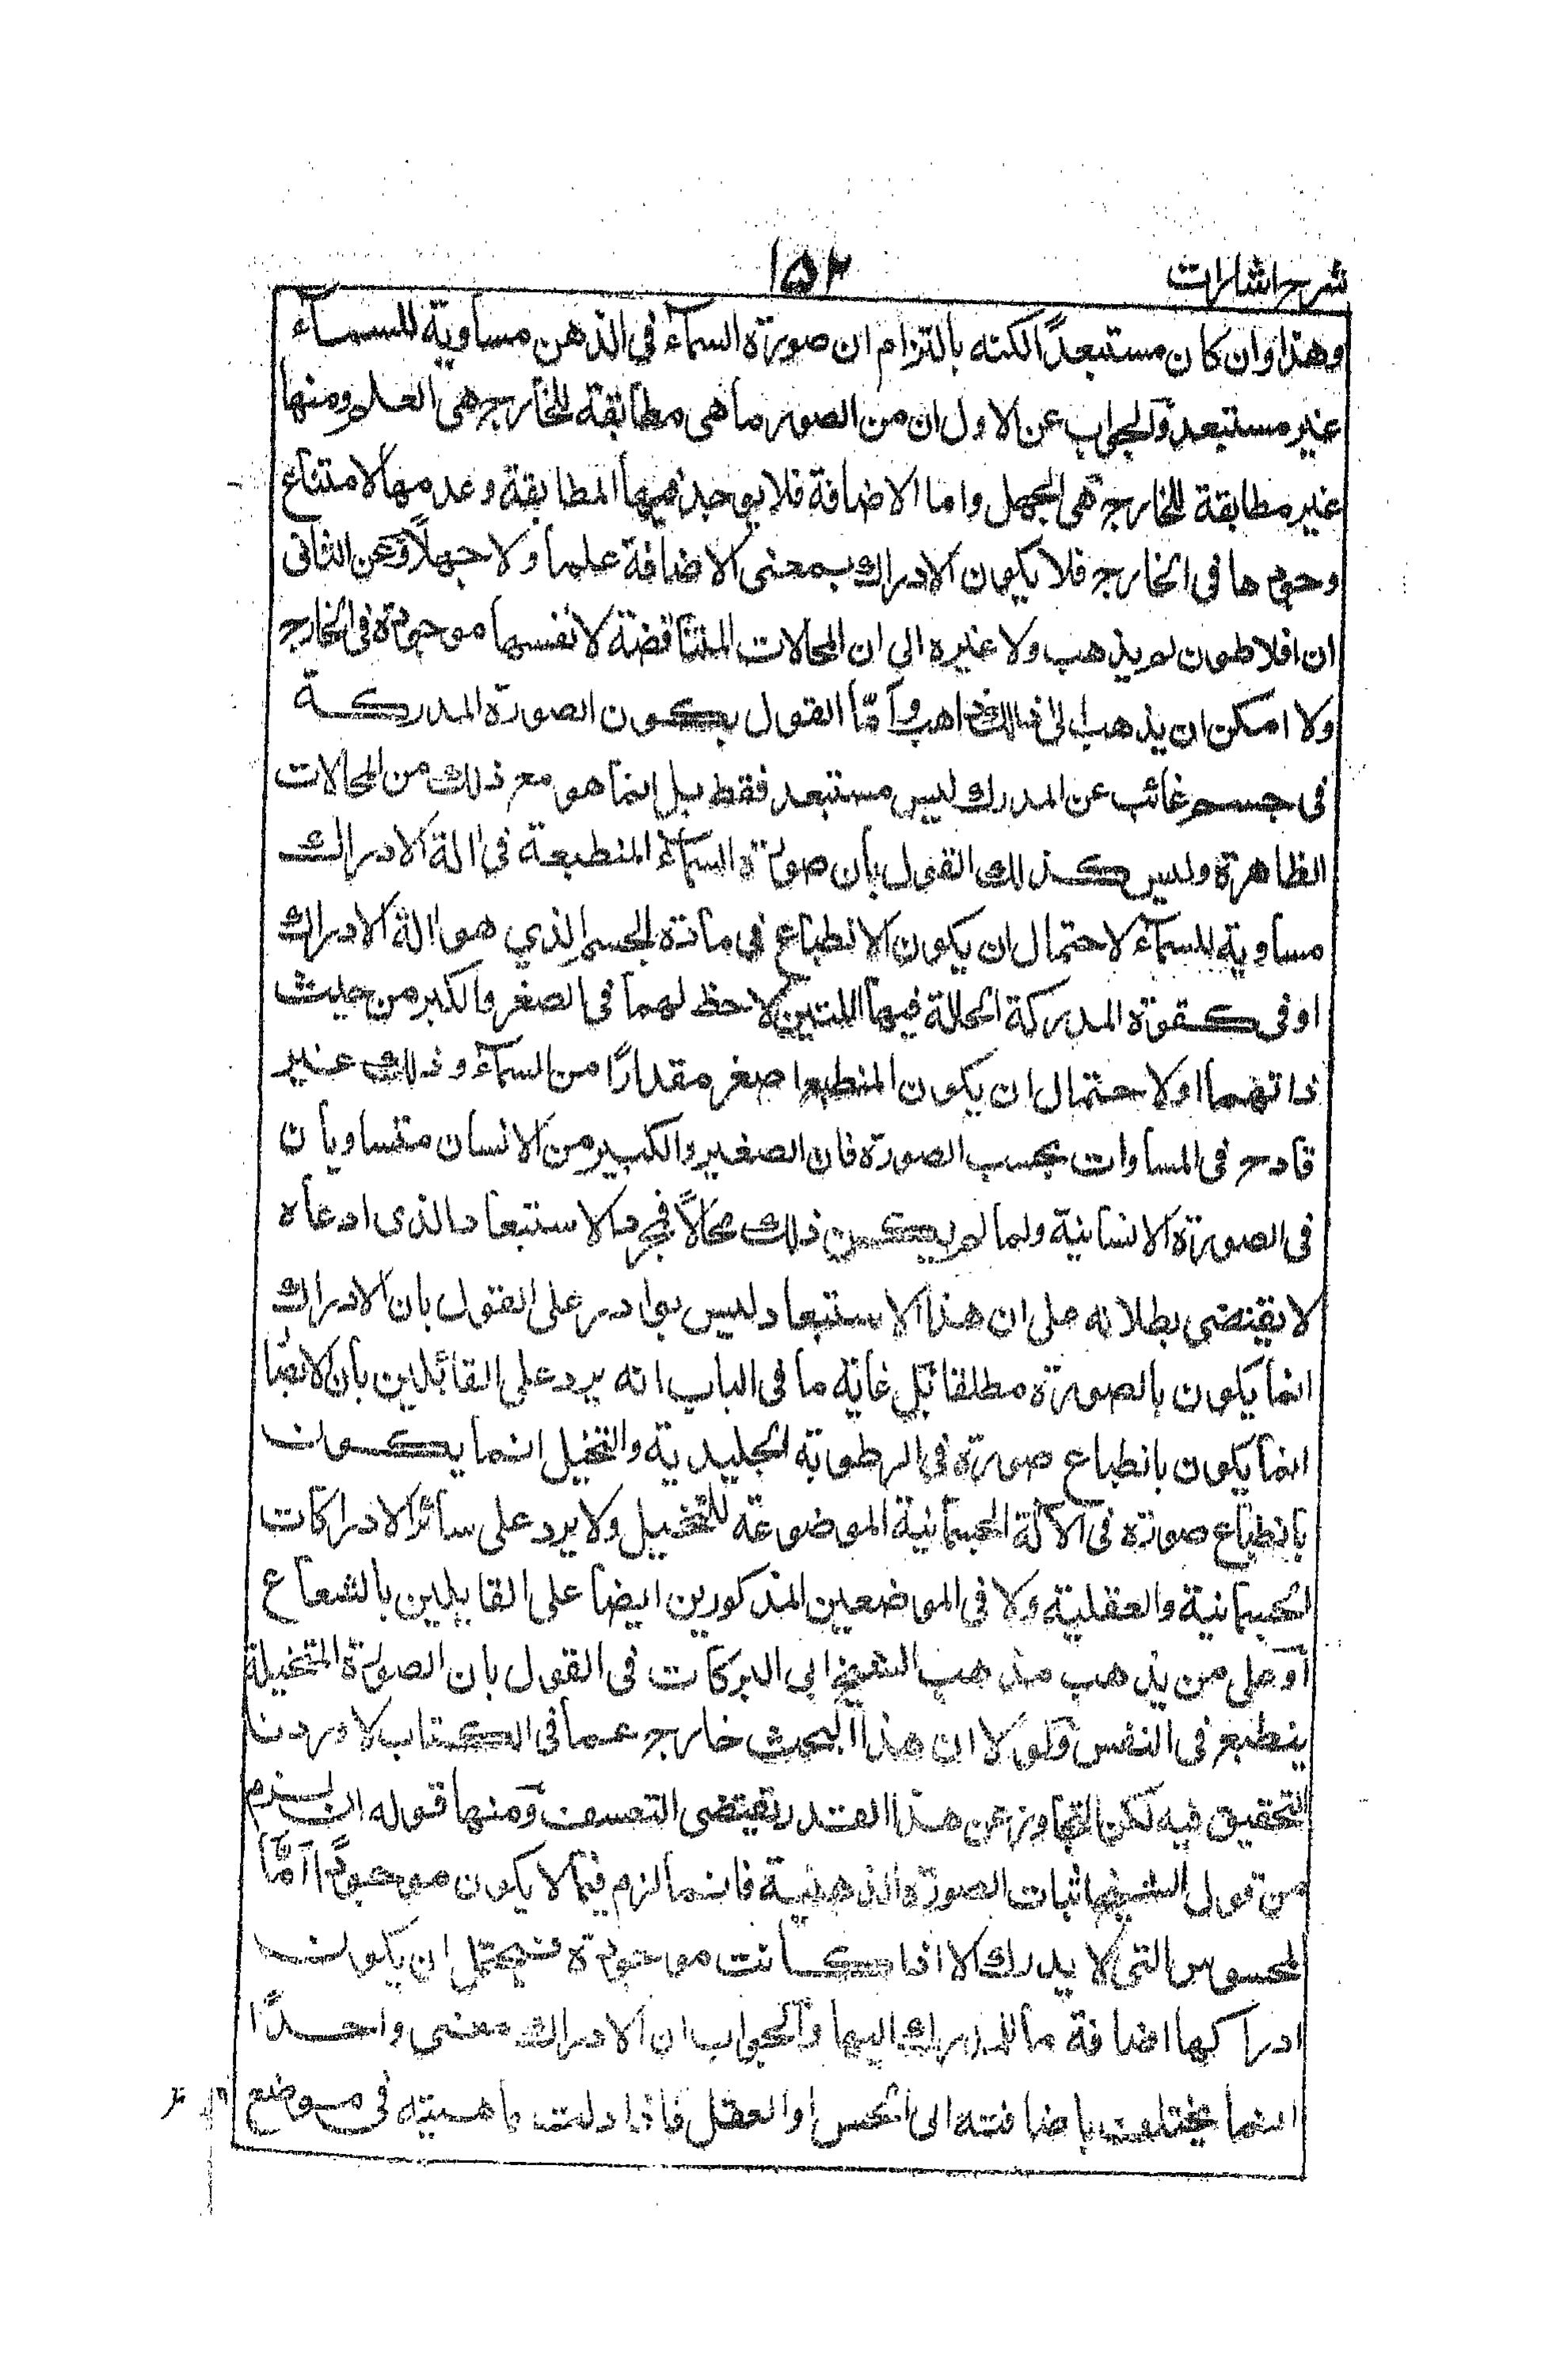 شرح اشارات
١٥٢
وهذا وان كان مستبعدًا لكنه بالتزام ان صورة السمآء فى الذهن مساوية للسمآء
غير مستبعد والجواب عن الاول ان من الصور ما هى مطابقة للخارج هى العلم ومنها
غير مطابقة للخارج هى الجهل واما الاضافة فلا يوجد فيها المطابقة وعدمها لامتناع
وجودها فى الخارج فلا يكون الادراك بمعنى الاضافة علما ولا جهلاً وعن الثانى
ان افلاطون لم يذهب ولا غيره الى ان المحالات المتناقضة لانفسها موجودة فى الخارج
ولا امكن ان يذهب الى ذلك ذاهب وامّا القول بكون الصورة المدركة
فى جسم غائب عن المدرك ليس مستبعد فقط بل انما هو مع ذلك من المحالات
الظاهرة وليس كذلك القول بان صورة السمآء المنطبعة فى الة الادراك
مساوية للسمآء لاحتمال ان يكون الانطباع فى مادة الجسم الذي هو الة الادراك
او فى كقوة المدركة الحالة فيها اللتين لاحظ لهما فى الصغر والكبر من حيث
ذاتهما او لاحتمال ان يكون المنطبع اصغر مقدارًا من السمآء وذلك غير
قادح فى المساوات بحسب الصورة فان الصغير والكبير من الانسان متساويان
فى الصورة الانسانية ولما لم يكن ذلك محالاً فمجرد الاستبعاد الذى ادعاه
لا يقتضى بطلانه على ان هذا الاستبعاد ليس بوادر على القول بان الادراك
انما يكون بالصورة مطلقا بل غاية ما فى الباب انه يرد على القائلين بان الابصا
انما يكون بانطباع صورة فى الرطوبة الجليدية والتخيل انما يكون
بانطباع صورة فى الآلة الجسمانية الموضوعة للتخيل ولا يرد على سائر الادراكات
الجسمانية والعقلية ولا فى الموضعين المذكورين ايضا على القايلين بالشعاع
او على من يذهب مذهب الشيخ ابى البركات فى القول بان الصورة المتخيلة
ينطبع فى النفس ولولا ان هذا البحث خارج عما فى الكتاب لاوردنا
التحقيق فيه لكن التجاوز عن هذا القدر يقتضى التعسف ومنها قوله ان لزم
من قول الشيخ اثبات الصورة الذهنية فانما لزم فيما لا يكون موجودًا امّا
المحسوس التى لا يدرك الا اذا كانت موجودة فيحتمل ان يكون
ادراكها اضافة ما للمدرك اليها والجواب ان الادراك معنى واحدًا
انما يختلف باضافته الى الحس او العقل فاذا دلت ماهيته فى موضع